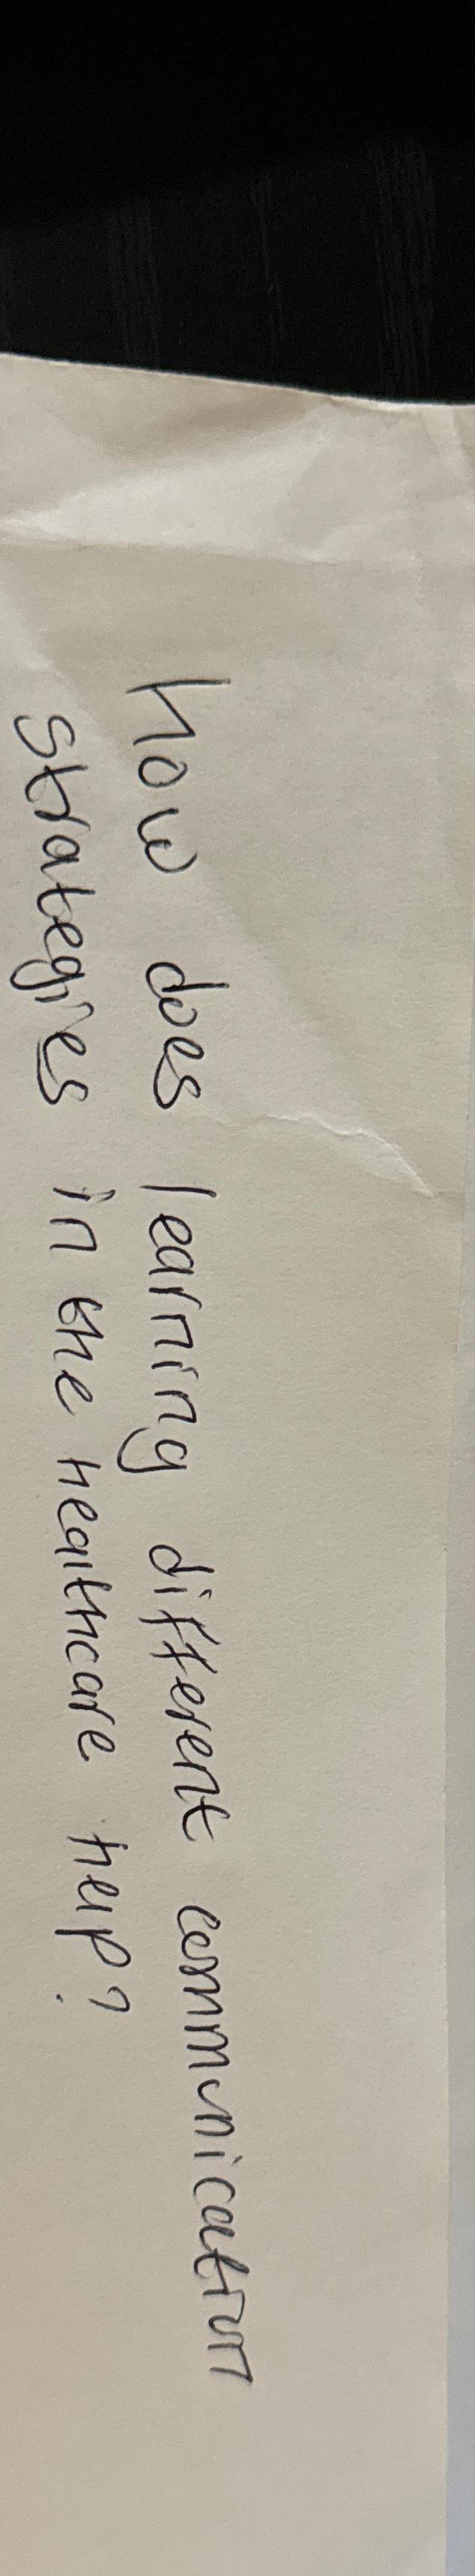 how does learning different communication
strategies in the healthcare help?